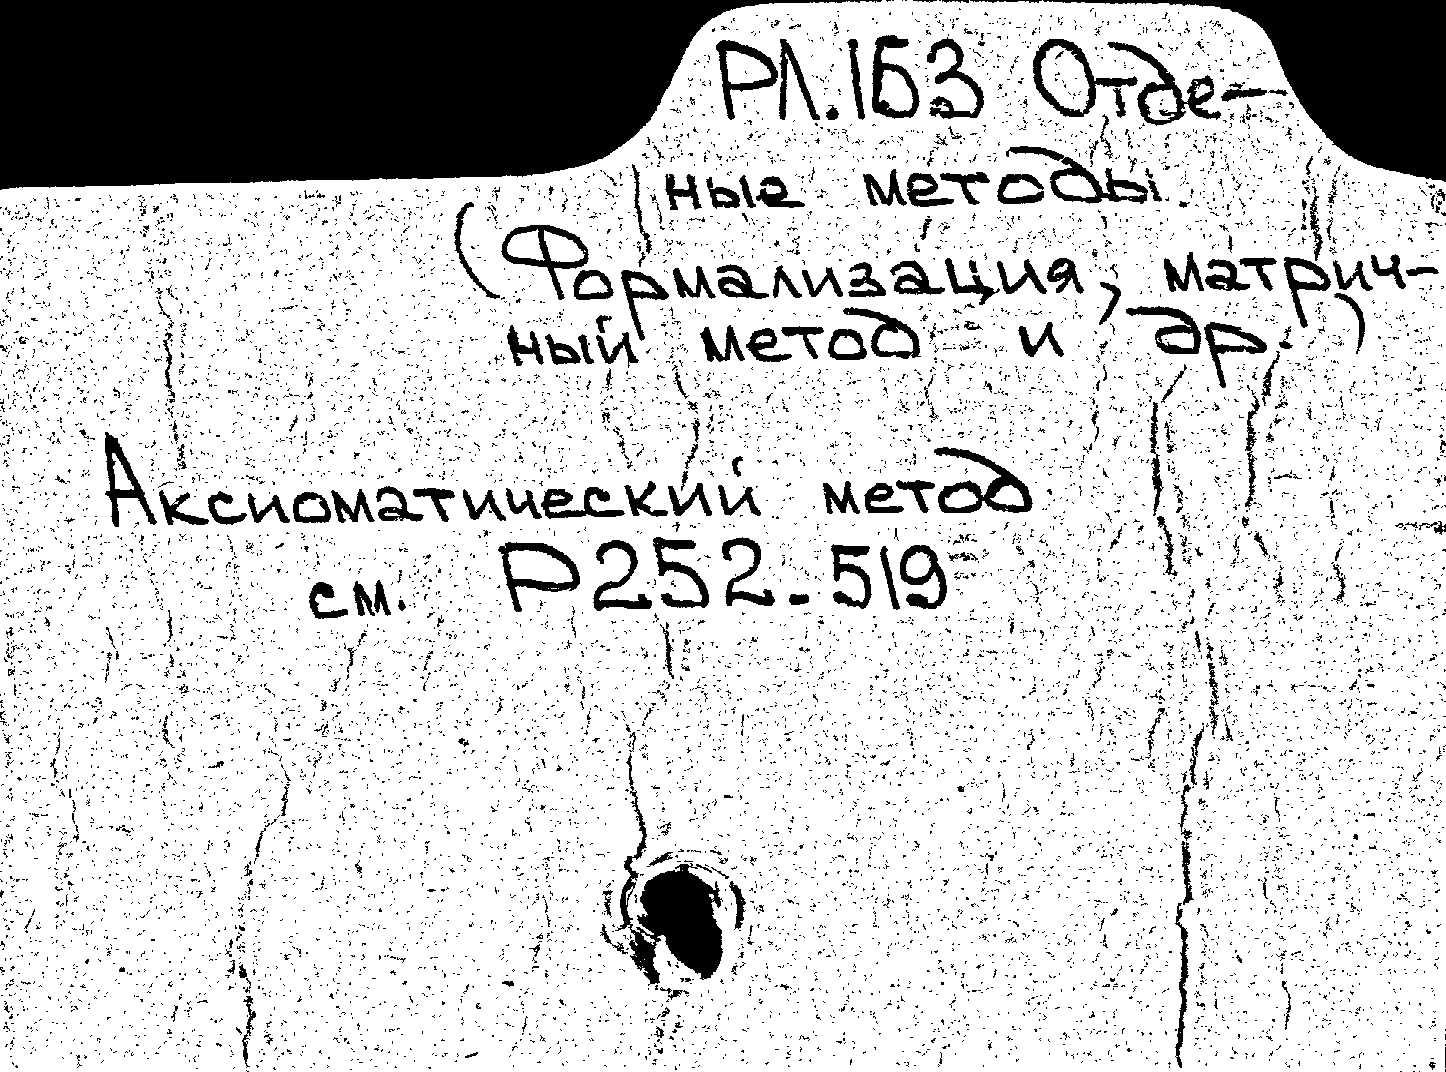 РЛ.153 Отде-
ные методы.
(Формализация, матрич-
ный метод и др.)
Аксиоматический метод
см. Р252.519